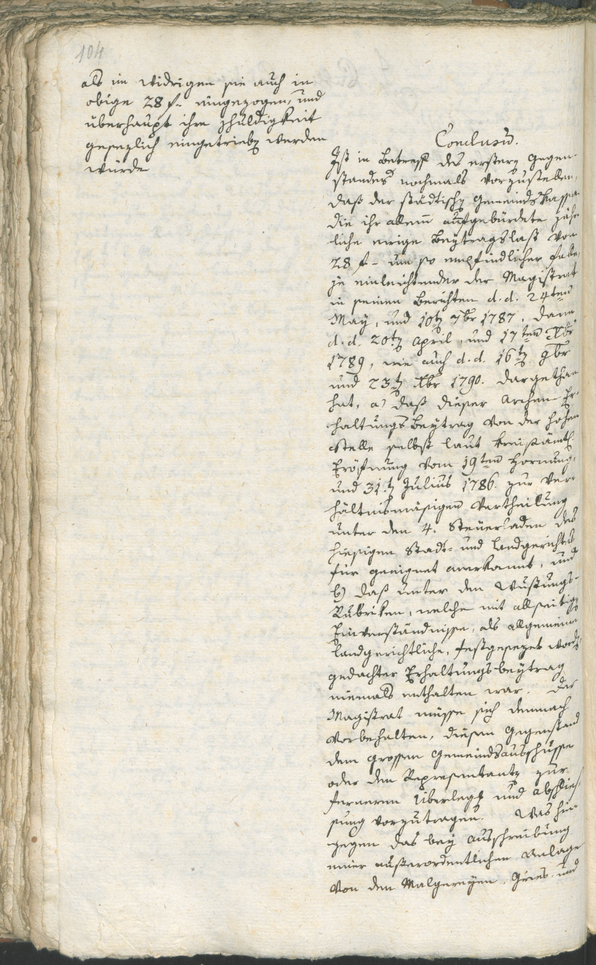 104
als im widrigen sie auch in
obige 28 f. eingezogen, und
überhaupt ihre Schuldigkeit
gesezlich eingetrieben werden
würde
Conclusum.
Ist in Betreff des erstern Gegen-
standes nochmals vorzustellen,
daß der städtischen Gemeinds Kasse
die ihr allein aufgebürdete jähr-
liche einige Beytragslast von
28 f. um so empfindlicher falle,
je einleuchtender der Magistrat
in seinen Berichten d.d. 24ten
May, und 10ten 7br 1787. dann
d.d. 20ten April, und 17ten Xbr
1789, wie auch d.d. 16ten 9br
und 23ten Xbr 1790. dargethan
hat, a) daß dieser Archen Er-
haltungs Beytrag von der hohen
Stelle selbst laut kreisämtl.
Eröffnung vom 19ten Hornung,
und 31ten Julius 1786. zur ver-
hältnismäsigen Vertheilung
unter den 4. Steuerladen des
hiesigen Stadt- und Landgerichts
für geeignet anerkannt, und
b) daß unter den Wustungs-
Rubriken, welche mit allseitig
Einverständnisse, als allgemein
landgerichtliche, festgesezet worden
gedachter Erhaltungsbeytrag
niemals enthalten war. Der
Magistrat müsse sich demnach
vorbehalten, diesen Gegenstand
dem grossen Gemeindsausschusse
oder den Representanten zur
fernern Überlegung und Abschlies-
sung vorzutragen. Was hin-
gegen das bey Ausschreibung
einer ausserordentlichen Anlage
von den Malgreyen, Gries und